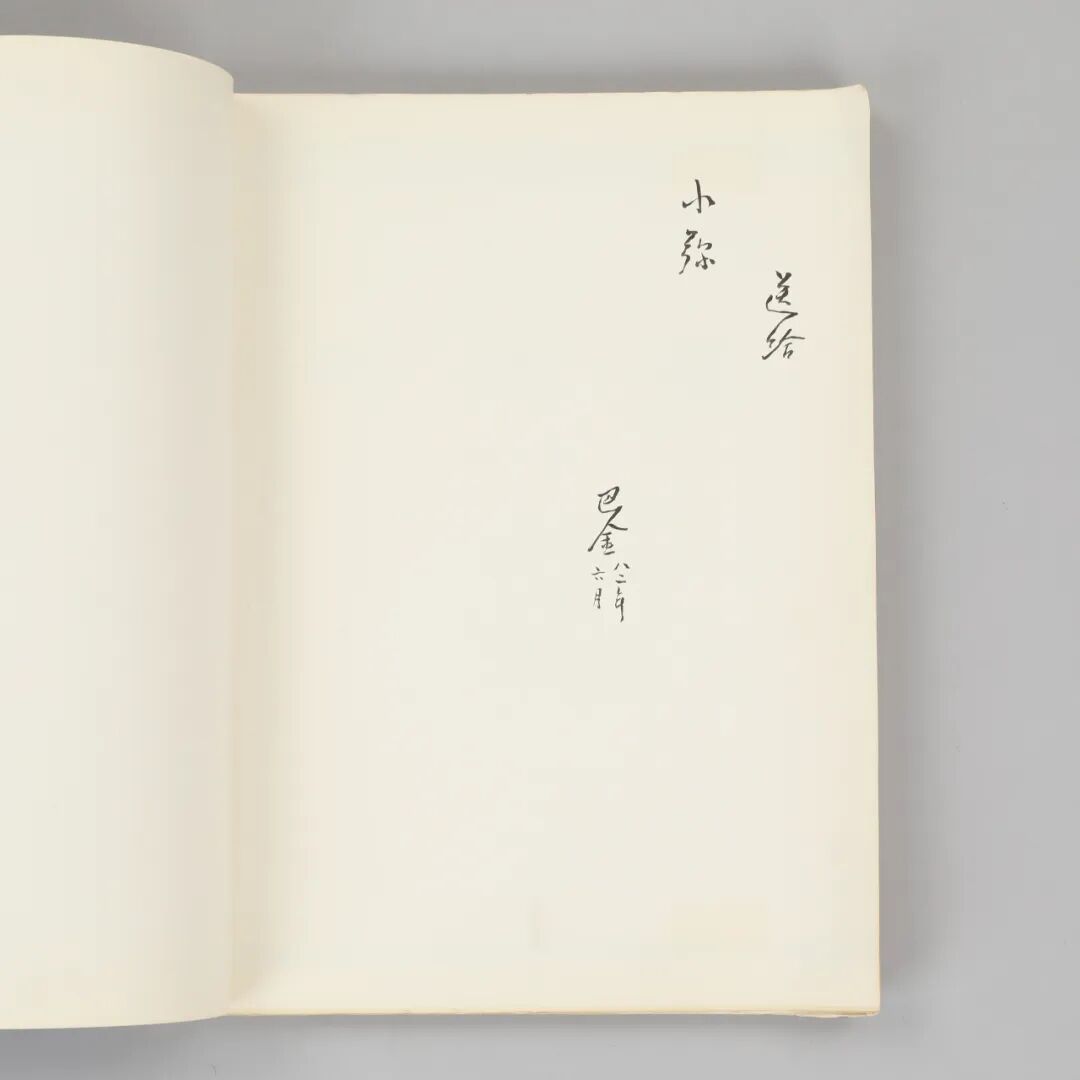 送给
小弥
巴金
八二年
六月